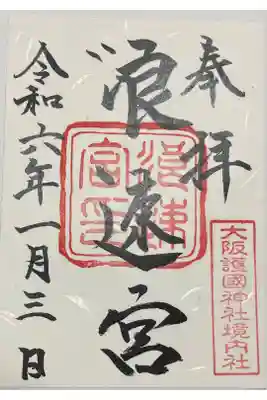 奉拝
大阪護國神社境内社
浪速宮
浪速
宮印
令和六年一月三日